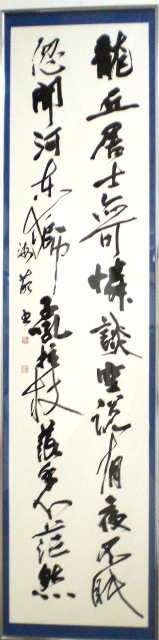 龍丘居士亦可憐談空說有夜不眠
忽聞河東師子吼拄杖落手心茫然